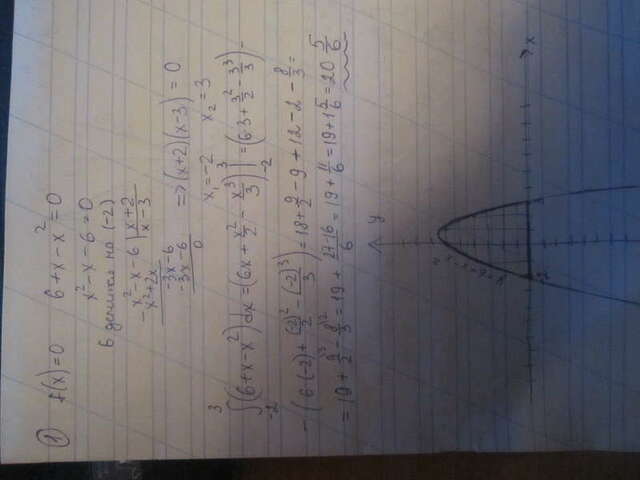 ① f(x)=0 6+x-x²=0
x²-x-6=0
6 делится на (-2)
-x²-x-6 | x+2
x²+2x | x-3
-3x-6
-3x-6 => (x+2)(x-3)=0
0
x₁=-2 x₂=3
∫₋₂³(6+x-x²)dx=(6x+x²/2-x³/3)|₋₂³=(6·3+3²/2-3³/3)-
-(6·(-2)+(-2)²/2-(-2)³/3)=18+9/2-9+12-2-8/3=
=19+9/2-8/3=19+(27-16)/6=19+11/6=19+1 5/6=20 5/6
y
x